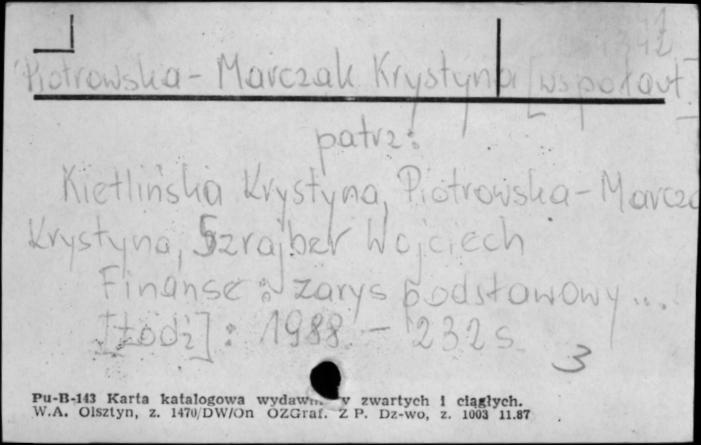 Piotrowska-Marczak Krystyna [współaut.]
patrz:
Kietlińska Krystyna, Piotrowska-Marcza
Krystyna, Szrajber Wojciech
Finanse: zarys podstawowy...
[Łódź]: 1988. - 232 s.
3
Pu-B-143 Karta katalogowa wydawn. zwartych i ciągłych.
W.A. Olsztyn, z. 1470/DW/On OZGraf. Z P. Dz-wo, z. 1003 11.87